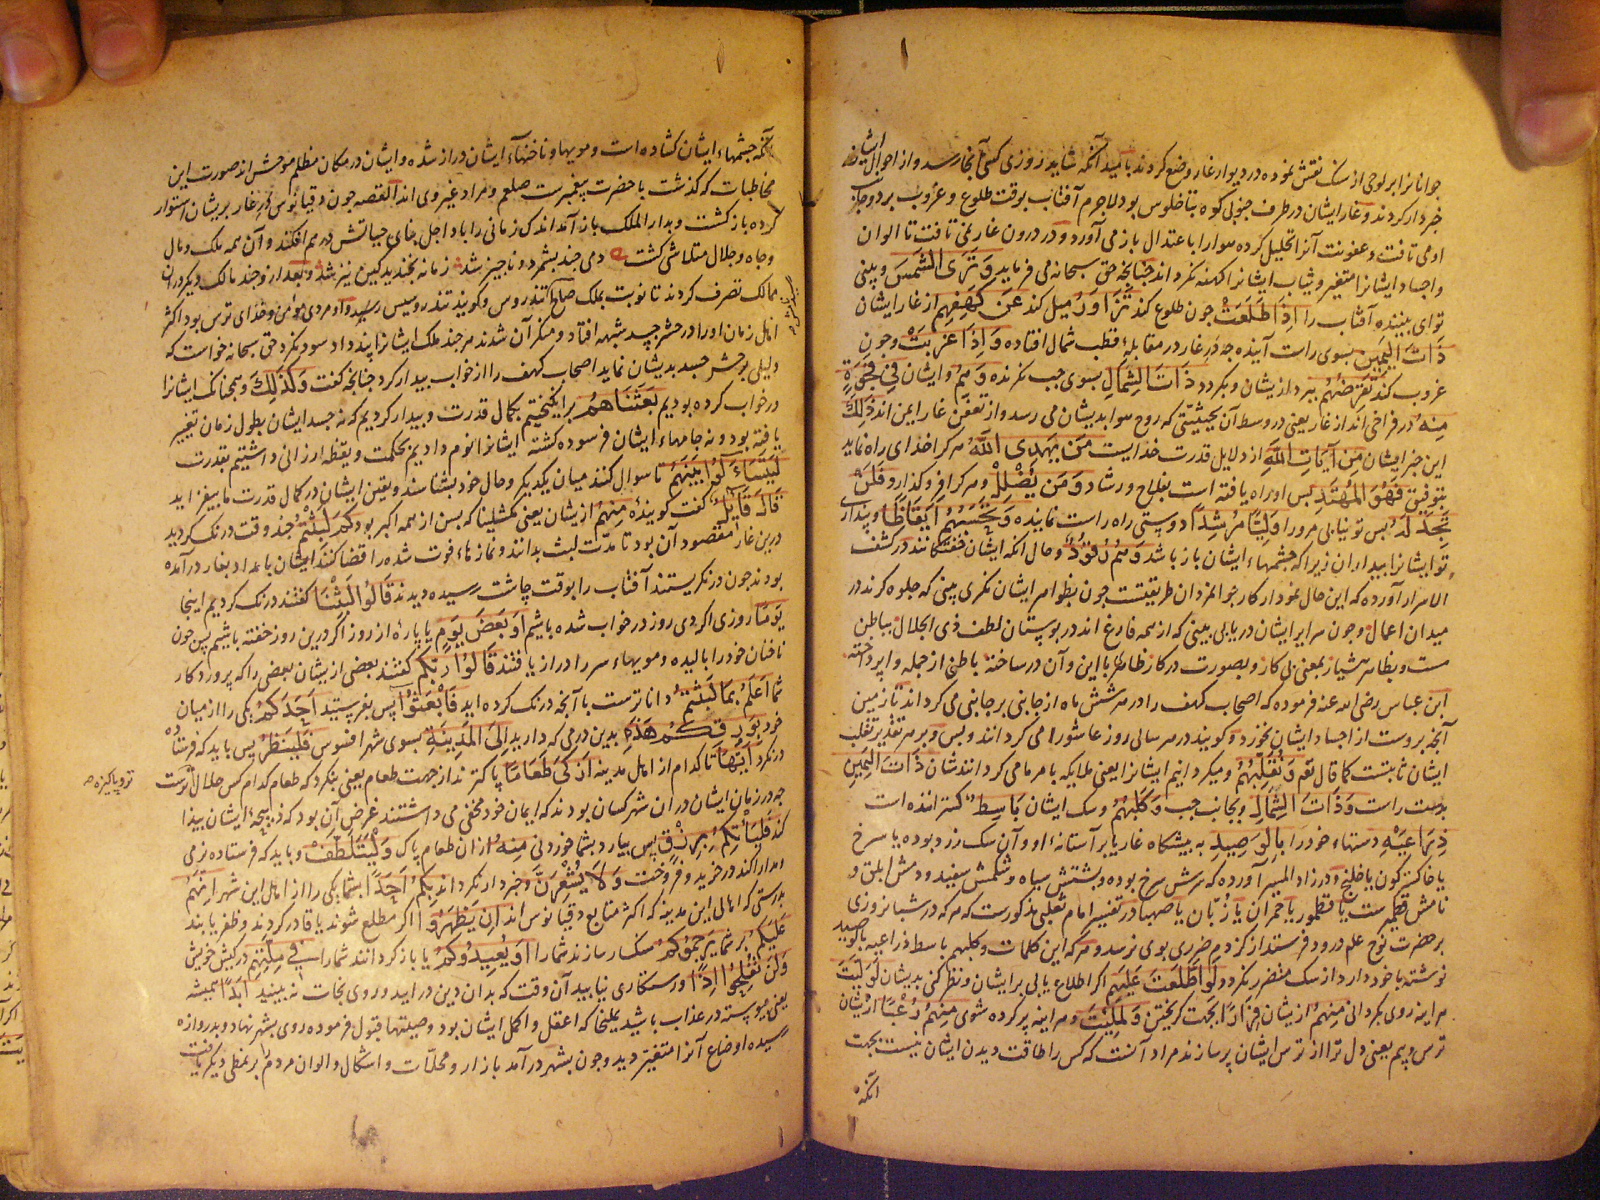 جوانانرا بر لوحی از سنک نقش نموده در دیوار غار وضع کردند بامید آنکه شاید روزی کسی آنجا رسد و از احوال ایشان
خبردار کردند و غار ایشان در طرف جنوبی کوه بتاخلوس بود لاجرم آفتاب بوقت طلوع و غروب بر دو جانب
او می تافت و عفونت آنرا تحلیل کرده هوا را با عتدال باز می آورد و در درون غار نمی تافت تا الوان
و اجساد ایشانرا متغیر و ثیاب ایشانرا کهنه نکرداند چنانچه حق سبحانه می فرماید وَتَرَى الشَّمْسَ و بینی
تو ای بیننده آفتاب را اِذَا طَلَعَتْ چون طلوع کند تَزَاوَرُ میل کند عَنْ كَهْفِهِمْ از غار ایشان
ذَاتَ الْيَمِينِ بسوی راست آینده چه در غار در مقابلهٔ قطب شمال افتاده وَ اِذَا غَرَبَتْ و چون
غروب کند تَقْرِضُهُمْ ببرد از یشان و بکردد ذَاتَ الشِّمَالِ بسوی چب نکرنده وَهُمْ و ایشان فِي فَجْوَةٍ
مِنْهُ در فراخی اند از غار یعنی در وسط آن بحیثیتی که روح هوا بدیشان می رسد و از تعفن غار ایمن اند ذٰلِكَ
این خبر ایشان مِنْ آيَاتِ اللهِ از دلایل قدرت خدایست مَنْ يَهْدِى اللهُ هر کرا خدای راه نماید
بتوفیق فَهُوَ الْمُهْتَدِ بس او راه یافته است بفلاح و رشاد وَمَنْ يُضْلِلْ و هر کرا فرو کذارد فَلَنْ
تَجِدَ لَهُ بس تو نیابی مر ورا وَلِيًّا مُرْشِدًا دوستی راه راست نماینده وَتَحْسَبُهُمْ اَيْقَاظًا و پنداری
تو ایشانرا بیداران زیرا که چشمهاء ایشان باز باشد وَهُمْ رُقُودٌ و حال آنکه ایشان خفتکانند در کشف
الاسرار آورده که این حال نمودار کار جوانمردان طریقتست چون بظواهر ایشان نکری بینی که جلوه کرند در
میدان اعمال و چون سرایر ایشان دریابی بینی که از همه فارغ اند در بوستان لطف ذی الجلال بباطن
مست و بظاهر هشیار بمعنی بی کار و بصورت در کار
ابن عباس رضی الله عنه فرموده که اصحاب کهف را در هر شش ماه از جانبی بر جانبی می کردانند تا زمین
آنچه بروست از اجساد ایشان نخورد و کویند در هر سالی روز عاشورا می کردانند و بس و بر هر تقدیر تقلب
ایشان ثابتست کما قال تعم وَنُقَلِّبُهُمْ و میکردانیم ایشانرا یعنی ملایکه بامر ما می کردانندشان ذَاتَ الْيَمِينِ
بدست راست وَذَاتَ الشِّمَالِ و بجانب چب وَكَلْبُهُمْ و سک ایشان بَاسِطٌ کسترانیده است
ذِرَاعَيْهِ دستهاء خود را بِالْوَصِيدِ به پیشکاه غار یا بر آستانهٔ او و آن سک زرد بوده یا سرخ
یا خاکسترکون یا خلنج و در زاد المسیر آورده که سرش سرخ بوده و بشتش سیاه و شکمش سفید و دمش ابلق و
نامش قطمیرست یا قطمور یا حمران یا زبّان یا صهبا در تفسیر امام ثعلبی مذکورست که هر که در شبانروزی
بر حضرت نوح علم درود فرستد از کژدم ضرری بوی نرسد و هر که این کلمات و کلبهم باسط ذراعیه بالوصید
نوشته با خود دارد از سک متضرر نکردد لَوِ اطَّلَعْتَ عَلَيْهِمْ اکر اطلاع یابی بر ایشان و نظر کنی بدیشان لَوَلَّيْتَ
هر آینه روی بکردانی مِنْهُمْ از یشان فِرَارًا بجهت کریختن وَلَمُلِئْتَ و هر آینه پر کرده شوی مِنْهُمْ رُعْبًا از یشان
ترس و بیم یعنی دل ترا از ترس ایشان پر سازند مراد آنست که کس را طاقت دیدن ایشان نیست بجهت
آنکه
آنکه چشمهاء ایشان کشاده است و مویها و ناخنهاء ایشان دراز شده و ایشان در مکان مظلم موحش اند صورت این
مخاطبات که کذشت با حضرت پیغمبرست صلعم و مراد غیر وی اند القصه چون دقیانوس در غار بریشان استوار
کرده باز کشت و بدار الملک باز آمد اندک زمانی را باد اجل بنای حیاتش درهم افکند و آن همه ملک و مال
و جاه و جلال متلاشی کشت دمی چند بشمرد و ناچیز شد زمانه بخندید کین نیز شد و بعد از و چند مالک دیکر در ان
ممالک تصرف کردند تا نوبت بملک صالح تندروس و کویند تندروسیس رسید و او مردی مؤمن و خدای ترس بود اکثر
اهل زمان او را در حشر جسد شبهه افتاد و منکر آن شدند هر چند ملک ایشانرا پند داد سود نکرد حق سبحانه خواست که
دلیلی بر حشر جسد بدیشان نماید اصحاب کهف را از خواب بیدار کرد چنانچه کفت وَكَذٰلِكَ و همچنانک ایشانرا
در خواب کرده بودیم بَعَثْنَاهُمْ برانکیختیم بکمال قدرت و بیدار کردیم که نه جسد ایشان بطول زمان تغییر
یافته بود و نه جامهاء ایشان فرسوده کشته ایشانرا نوم دادیم بحکمت و یقظه ارزانی داشتیم بقدرت
لِيَتَسَاءَلُوا بَيْنَهُمْ تا سوال کنند میان یکدیکر و حال خود بشناسند و یقین ایشان در کمال قدرت ما بیفزاید
قَالَ قَائِلٌ کفت کویندهٔ مِنْهُمْ از یشان یعنی مکشلینا که بسن از همه اکبر بود كَمْ لَبِثْتُمْ چند وقت درنک کردید
درین غار مقصود آن بود تا مدّت لبث بدانند و نمازهاء فوت شده را قضا کنند ایشان بامداد بغار در آمده
بودند چون در نکریستند آفتاب را بوقت چاشت رسیده دیدند قَالُوا لَبِثْنَا کفتند درنک کردیم اینجا
يَوْمًا روزی اکر دی روز در خواب شده باشیم اَوْ بَعْضَ يَوْمٍ یا پارهٔ از روز اکر درین روز خفته باشیم پس چون
ناخنان خود را بالیده و مویهاء سر را دراز یافتند قَالُوا رَبُّكُمْ کفتند بعضی از یشان بعضی را که پروردکار
شما اَعْلَمُ بِمَا لَبِثْتُمْ داناترست با آنچه درنک کرده اید فَابْعَثُوا پس بفرستید اَحَدَكُمْ یکی را از میان
خود بِوَرِقِكُمْ هٰذِهِ بدین درمی که دارید اِلَى الْمَدِينَةِ بسوی شهر افسوس فَلْيَنْظُرْ پس باید که فرستاده
در نکرد اَيُّهَا تا کدام از اهل مدینه اَزْكَى طَعَامًا پاکترند از جهت طعام یعنی بنکرد که طعام کدام کس حلال ترست
ترو پاکیزه
چه در زمان ایشان در ان شهر کسان بودند که ایمان خود مخفی می داشتند غرض آن بود که ذبیحهٔ ایشان پیدا
کند فَلْيَأْتِكُمْ بِرِزْقٍ پس بیارد بشما خوردنی مِنْهُ از ان طعام پاک وَلْيَتَلَطَّفْ و باید که فرستاده نرمی
و مدارا کند در خرید و فروخت وَلَا يُشْعِرَنَّ و خبردار نکرداند بِكُمْ اَحَدًا بشما یکی را از اهالی این شهر اِنَّهُمْ
بدرستی که اهالی این مدینه که اکثر متابع دقیانوس اند اِنْ يَظْهَرُوا اکر مطلع شوند یا قادر کردند و ظفر یابند
عَلَيْكُمْ بر شما يَرْجُمُوكُمْ سنکسار سازند شما را اَوْ يُعِيدُوكُمْ یا باز کردانند شما را فِي مِلَّتِهِمْ در کیش خویش
وَلَنْ تُفْلِحُوا اِذًا و رستکاری نیابید آن وقت که بدان دین در آیید و روی نجات نه بینید اَبَدًا همیشه
یعنی پیوسته در عذاب باشید یملیخا که اعقل و اکمل ایشان بود وصیتها قبول فرموده روی بشهر نهاد و بدروازه
رسیده اوضاع آنرا متغیر دید و چون بشهر در آمد بازار و محلات و اشکال و الوان مردم را بر نمطی دیکر یافت